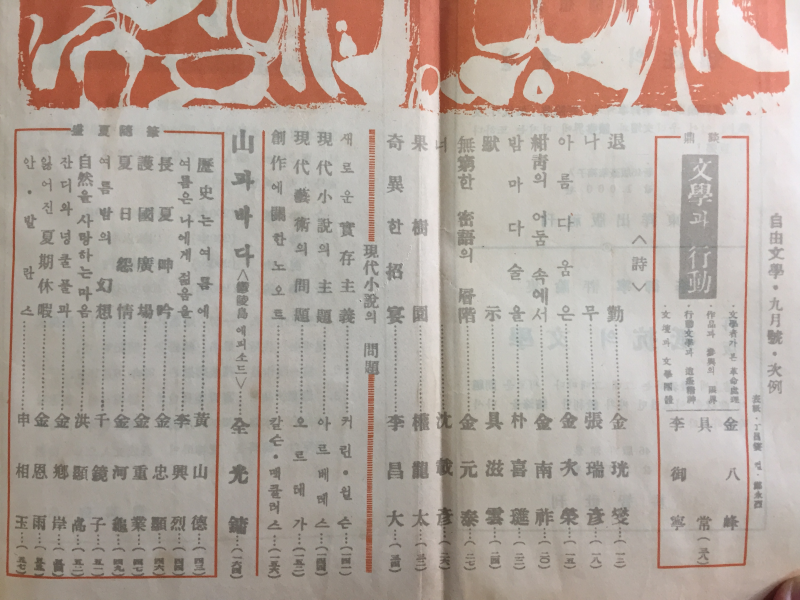 自由文學·九月號·次例
鼎談
文學과 行動
·文學者가 본 革命處理
·作品과 參與의 限界
·行動文學과 追慕精神
·文壇과 文學階級
金八峰
具常
李御寧
<詩>
退勤 金珖燮…(一三)
나무 張瑞彦…(一八)
아름다움은 金次榮…(一五)
紺青의 어둠 속에서 金南祚…(二〇)
밤마다 술을 朴喜璡…(二三)
默示 具滋雲…(二四)
無窮한 密語의 層階 金元泰…(二七)
너 沈載彦…(二六)
果樹園 權龍太…
奇異한 招宴 李昌大…
現代小說의 問題
새로운 實存主義 커린·윌슨…(一四一)
現代小說의 主題 아르베레스…
現代藝術의 問題 오르테가…(一五二)
創作에 關한 노오트 칼슨·맥큘러스…(一五六)
山과 바다 <鬱陵島 에피소드> 全光鏞…(一六四)
盛夏隨筆
歷史는 여름에 黃山德…(四三)
여름은 나에게 젊음을 李興烈…(四四)
長夏呻吟 金忠顯…(四六)
護國廣場 金重業…(四七)
夏日怨情 金河龜…(四九)
여름밤의 幻想 千鏡子…(五一)
自然을 사랑하는 마음 洪顯高…(五二)
잔디와 넝쿨풀과 金鄕岸…
잃어진 夏期休暇 金恩雨…
안·발란스 申相玉…(五七)